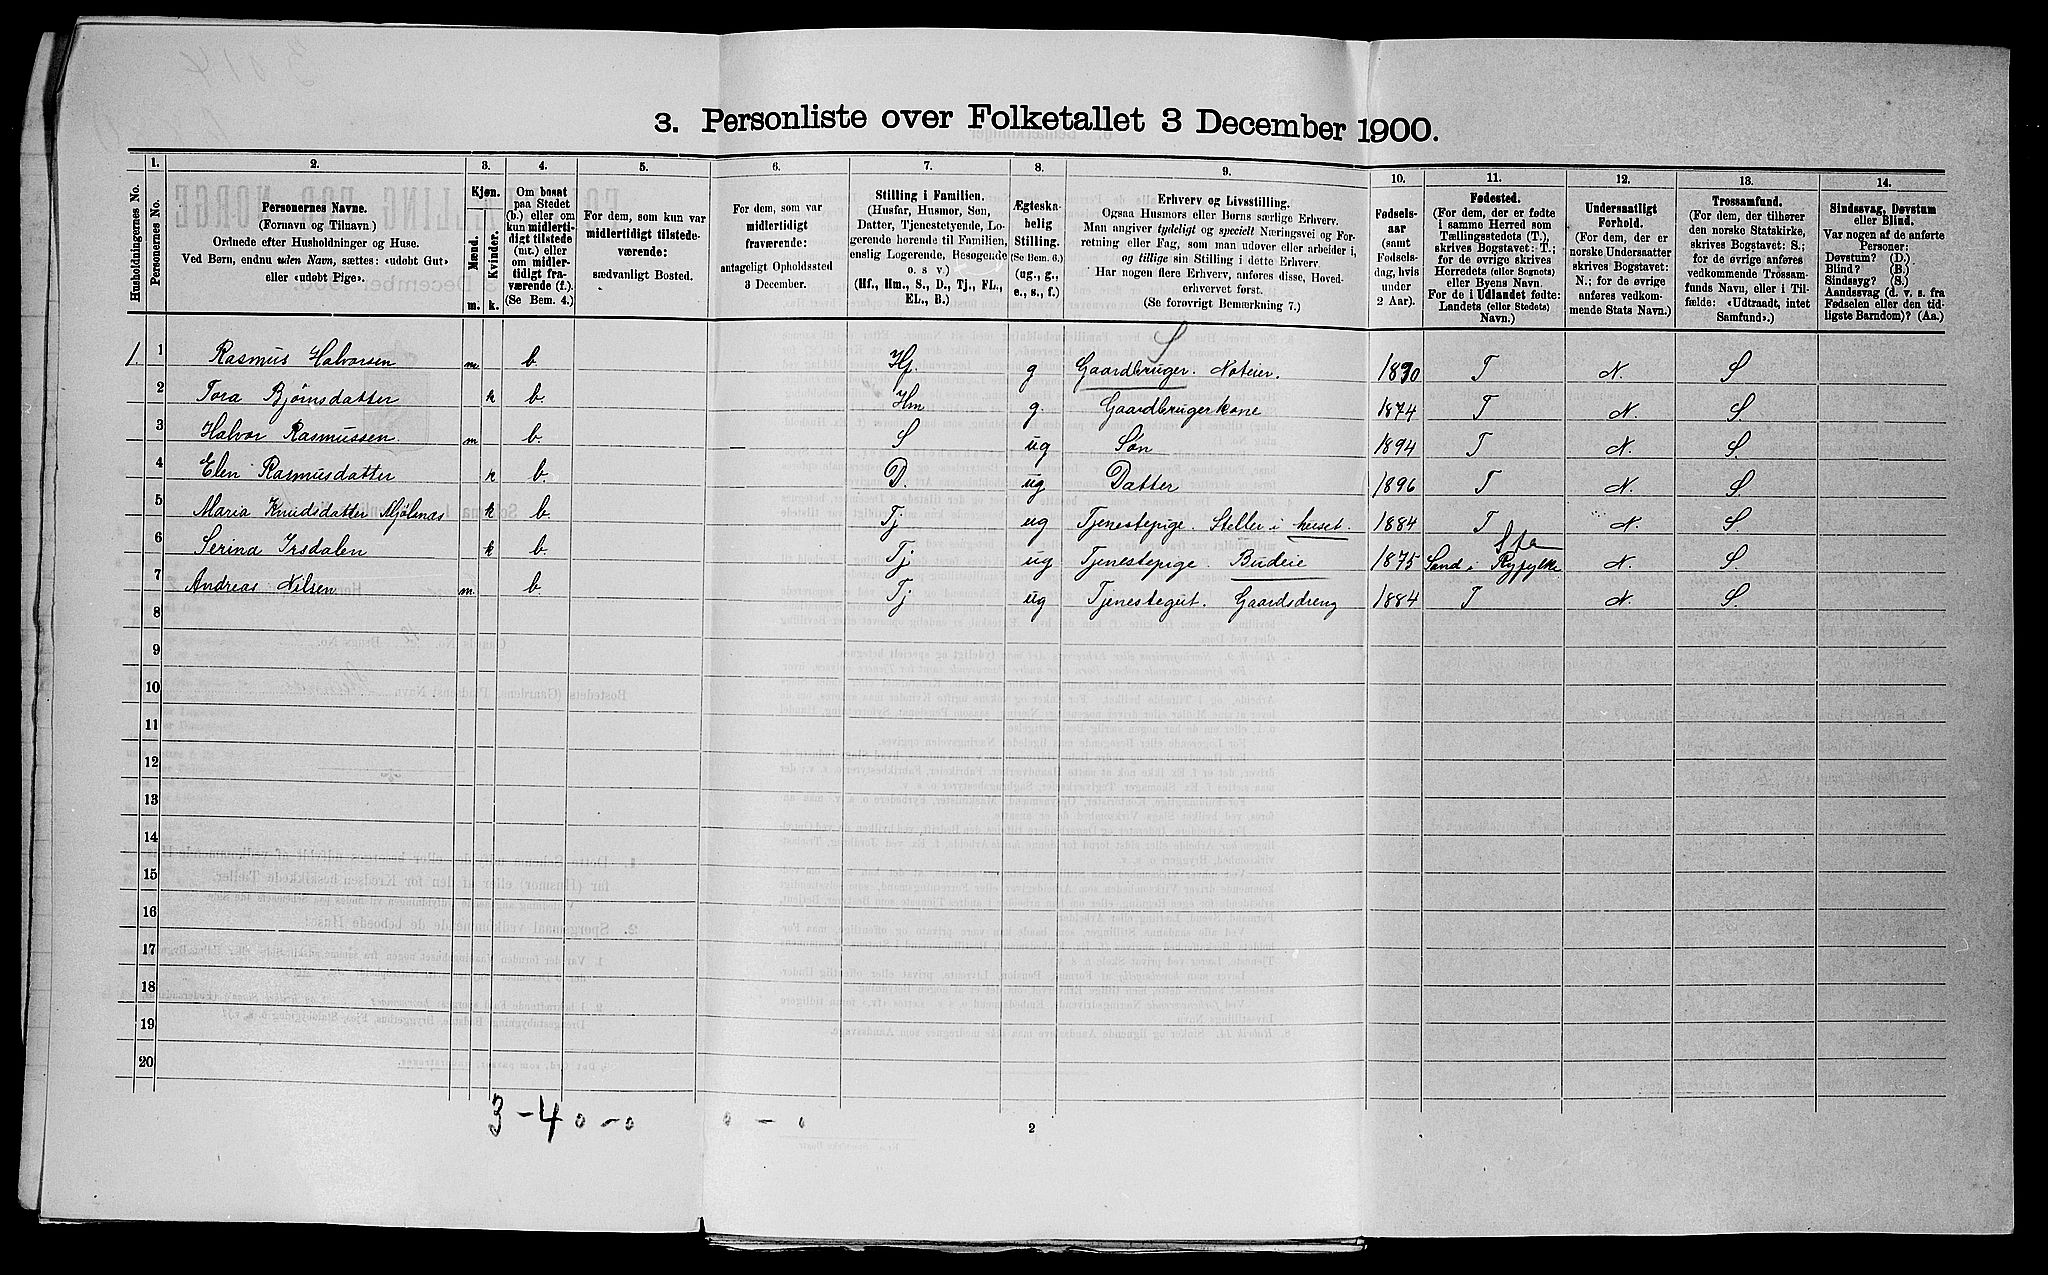 3. Personliste over Folketallet 3 December 1900.
1. 2. 3. 4. 5. 6. 7. 8. 9. 10. 11. 12. 13. 14.
Husholdningernes No.
Personernes No.
Personernes Navne.
(Fornavn og Tilnavn)
Ordnede efter Husholdninger og Huse.
Ved Børn, endnu uden Navn, sættes: «udøbt Gut»
eller «udøbt Pige».
Kjøn.
Mænd.
Kvinder.
m. k.
Om bosat
paa Stedet
(b.) eller om
kun midlerti-
digt tilstede
(mt.) eller
om midler-
tidigt fra-
værende (f.).
(Se Bem. 4.)
For dem, som kun var
midlertidigt tilstede-
værende:
sædvanligt Bosted.
For dem, som var
midlertidigt
fraværende:
antageligt Opholdssted
3 December.
Stilling i Familien.
(Husfar, Husmor, Søn,
Datter, Tjenestetyende, Lo-
gerende hørende til Familien,
enslig Logerende, Besøgende
o. s. v.)
(Hf., Hm., S., D., Tj., FL.,
EL., B.)
Ægteska-
belig
Stilling.
(Se Bem. 6.)
(ug., g.,
e., s., f.)
Erhverv og Livsstilling.
Ogsaa Husmors eller Børns særlige Erhverv.
Man angiver tydeligt og specielt Næringsvei og For-
retning eller Fag, som man udøver eller arbeider i,
og tillige sin Stilling i dette Erhverv.
Har nogen flere Erhverv, anføres disse, Hoved-
erhvervet først.
(Se forøvrigt Bemærkning 7.)
Fødsels-
aar
(samt
Fødsels-
dag, hvis
under
2 Aar).
Fødested.
(For dem, der er fødte
i samme Herred som
Tællingsstedets (T.),
skrives Bogstavet: T.;
for de øvrige skrives
Herredets (eller Sognets)
eller Byens Navn.
For de i Udlandet fødte:
Landets (eller Stedets)
Navn.)
Undersaatligt
Forhold.
(For dem, der er
norske Undersaatter
skrives Bogstavet:
N.; for de øvrige
anføres vedkom-
mende Stats Navn.)
Trossamfund.
(For dem, der tilhører
den norske Statskirke,
skrives Bogstavet: S.;
for de øvrige anføres
vedkommende Trossam-
funds Navn, eller i Til-
fælde: «Udtraadt, intet
Samfund».)
Sindssvag, Døvstum
eller Blind.
Var nogen af de anførte
Personer:
Døvstum? (D.)
Blind? (B.)
Sindssyg? (S.)
Aandssvag (d. v. s. fra
Fødselen eller den tid-
ligste Barndom)? (Aa.)
S
1. 1 Rasmus Halvorsen m. b. Hf. g Gaardbruger. Noteier. 1870 T N. S
2 Tora Bjørnsdatter k b. Hm g. Gaardbrugerkone 1874 T N S.
3 Halvor Rasmussen m b. S ug Søn 1894 T N. S.
4 Elen Rasmusdatter k b. D. ug Datter 1896 T N. S
5 Maria Knudsdatter Mjølsnas k b Tj ug Tjenestepige. Steller i huset. 1884 T N. S
6 Serina Irsdalen k b. Tj ug Tjenestepige. Budeie 1875 Sand i Ryfylke N. S.
7 Andreas Nilsen m. b Tj ug Tjenestegut. Gaardsdreng 1884 T N. S.
8
9
10
11
12
13
14
15
16
17
18
19
20
3 - 4 0 - 0 0 - 0
2